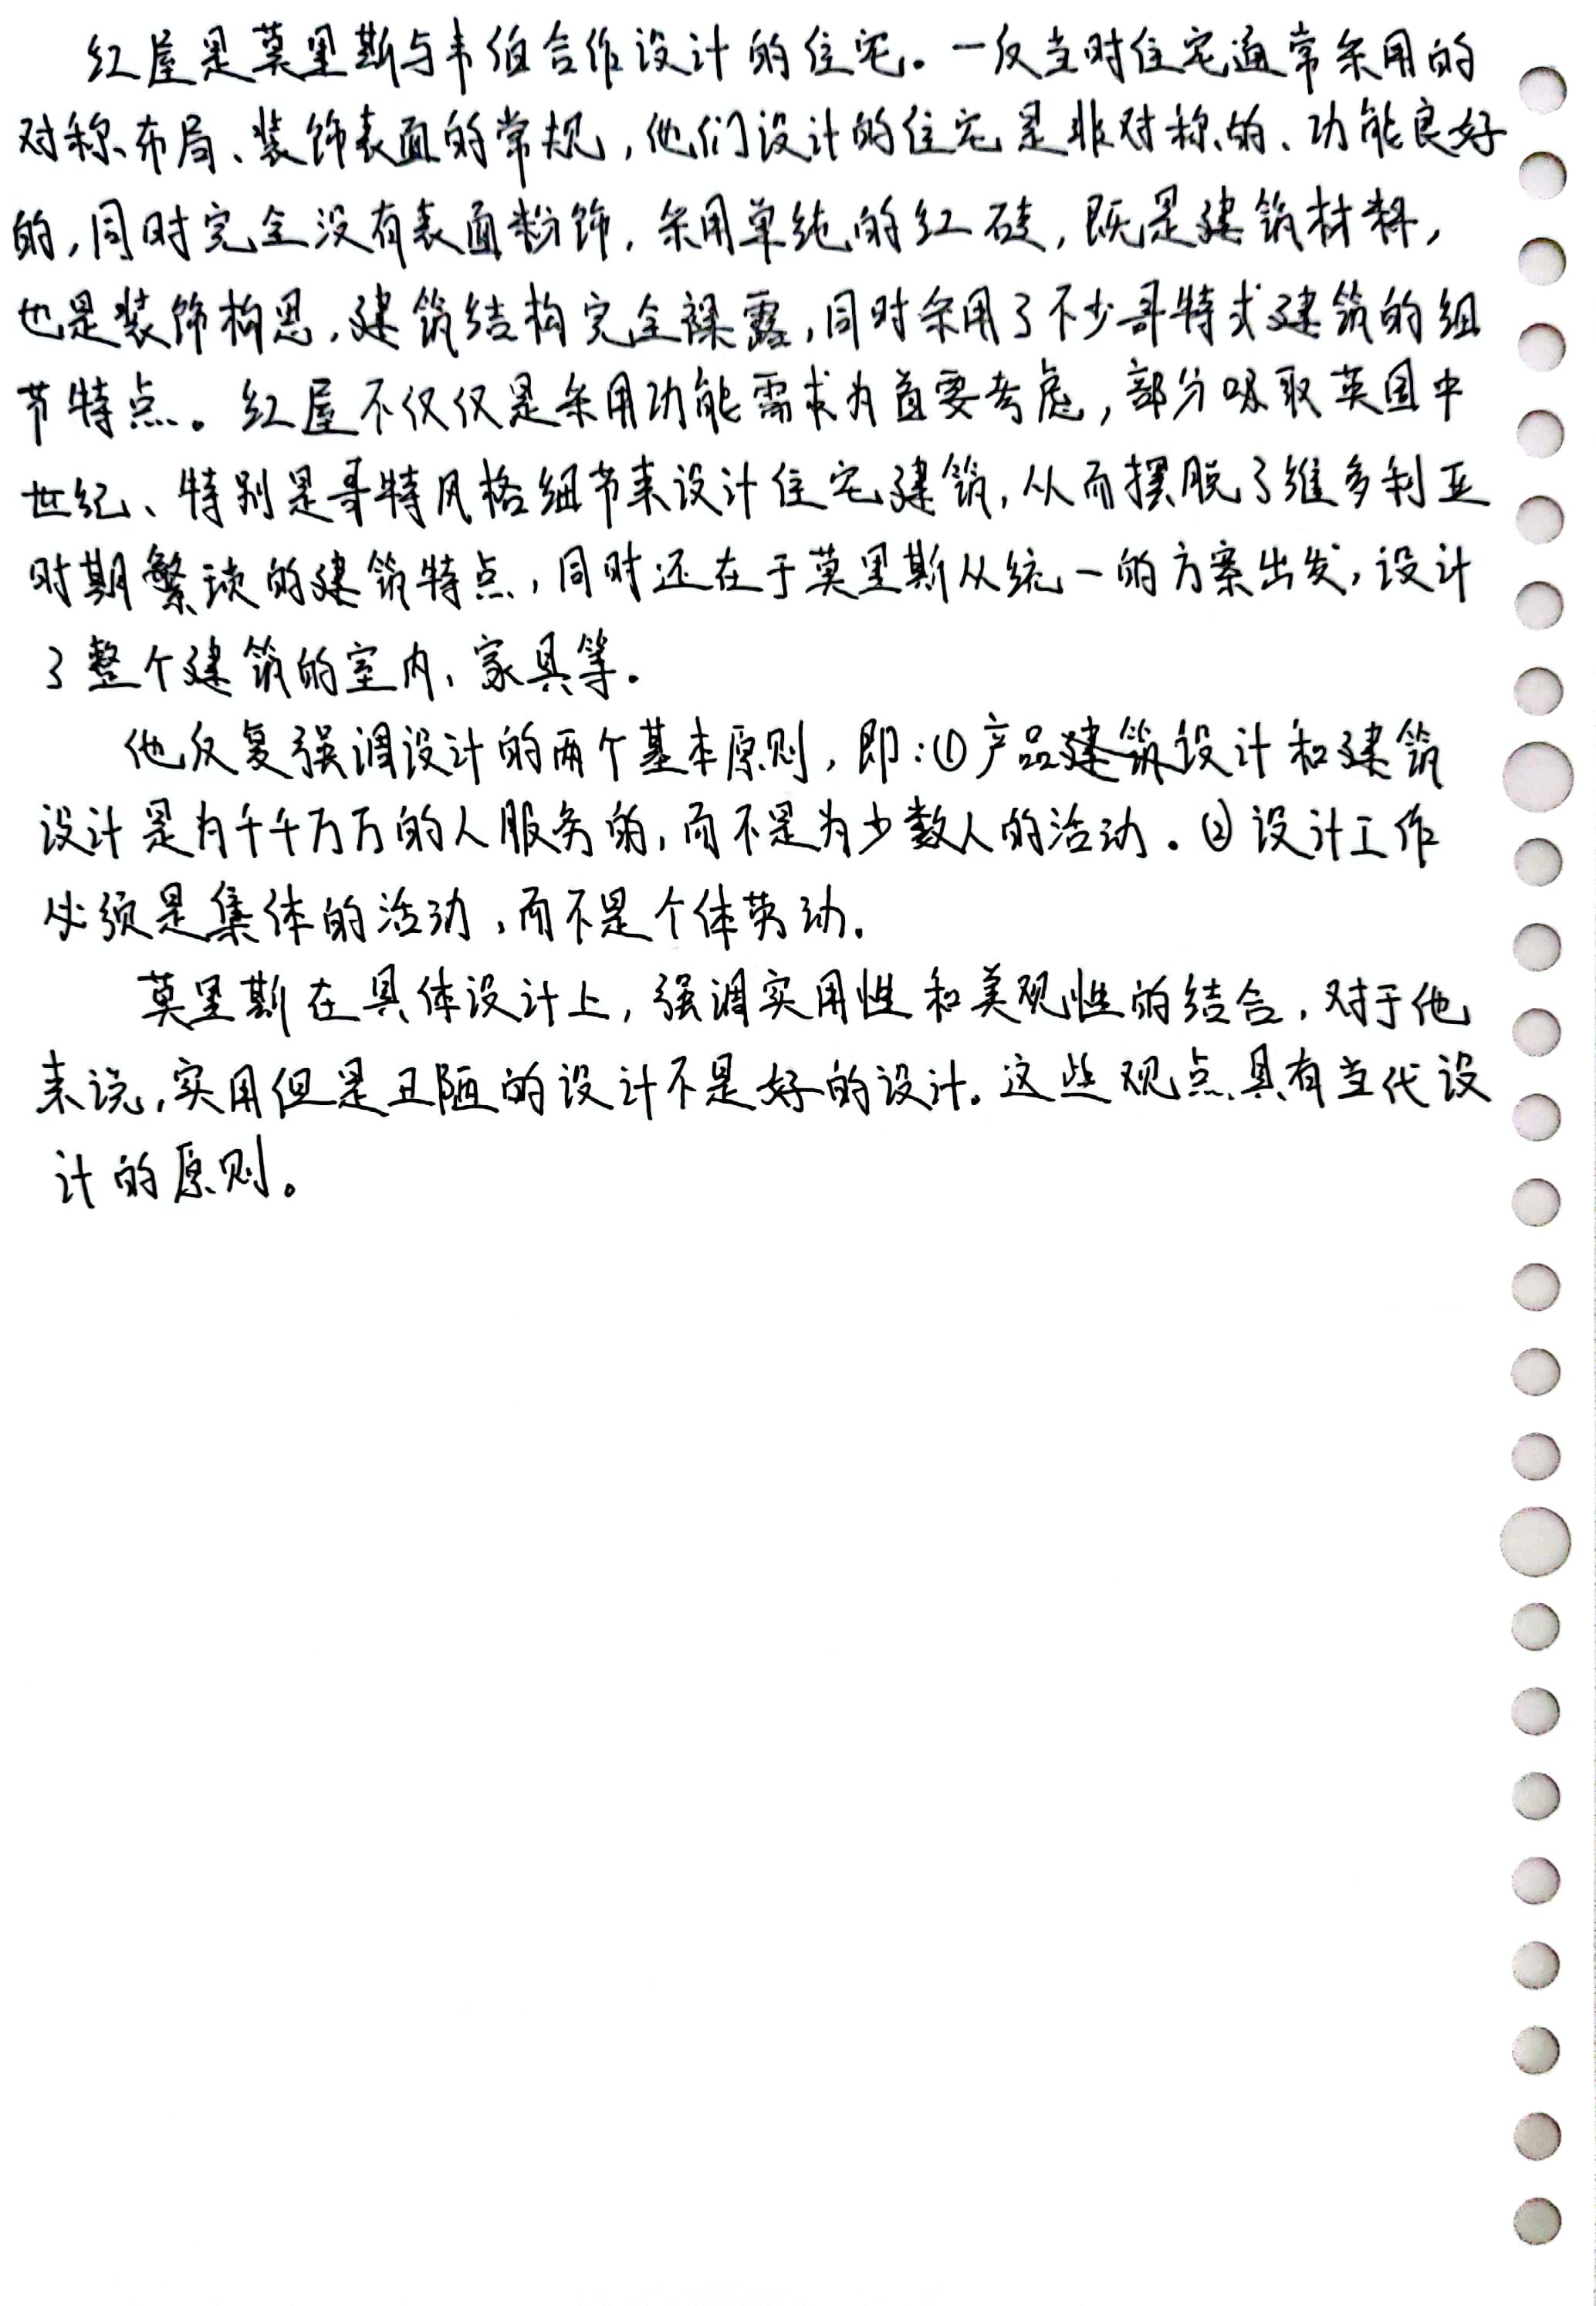 红屋是莫里斯与韦伯合作设计的住宅。一反当时住宅通常采用的
对称布局、装饰表面的常规，他们设计的住宅是非对称的、功能良好
的，同时完全没有表面粉饰，采用单纯的红砖，既是建筑材料，
也是装饰构思，建筑结构完全裸露，同时采用了不少哥特式建筑的细
节特点。红屋不仅仅是采用功能需求为首要考虑，部分吸取英国中
世纪、特别是哥特风格细节来设计住宅建筑，从而摆脱了维多利亚
时期繁琐的建筑特点，同时还在于莫里斯从统一的方案出发，设计
了整个建筑的室内、家具等。
他反复强调设计的两个基本原则，即：①产品建筑设计和建筑
设计是为千千万万的人服务的，而不是为少数人的活动。②设计工作
必须是集体的活动，而不是个体劳动。
莫里斯在具体设计上，强调实用性和美观性的结合，对于他
来说，实用但是丑陋的设计不是好的设计。这些观点具有当代设
计的原则。